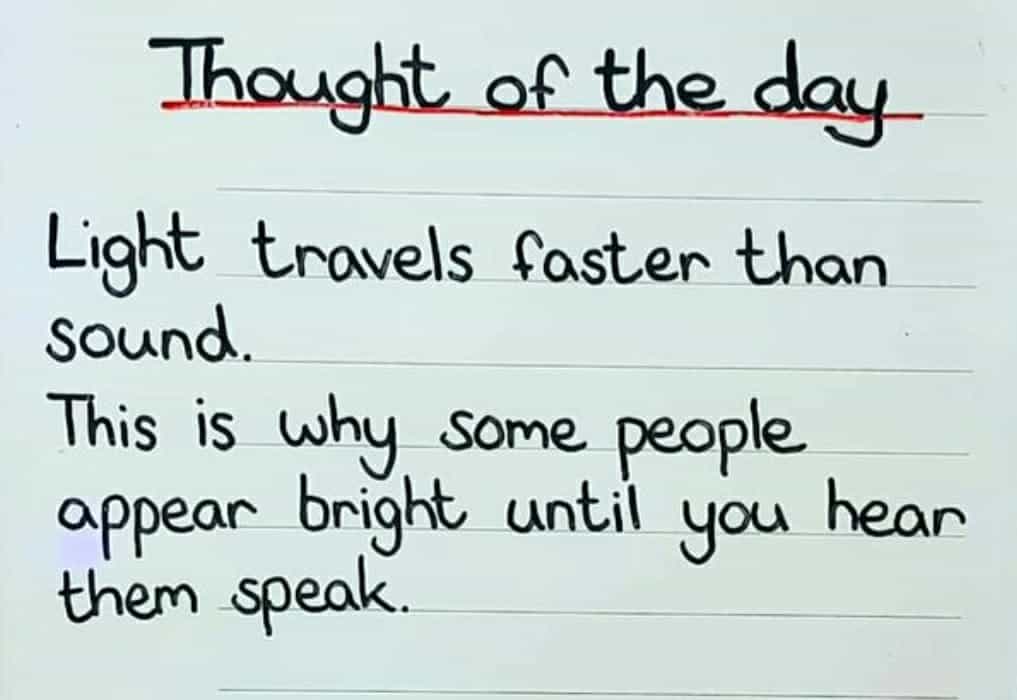 Thought of the day
Light travels faster than
sound.
This is why some people
appear bright until you hear
them speak.